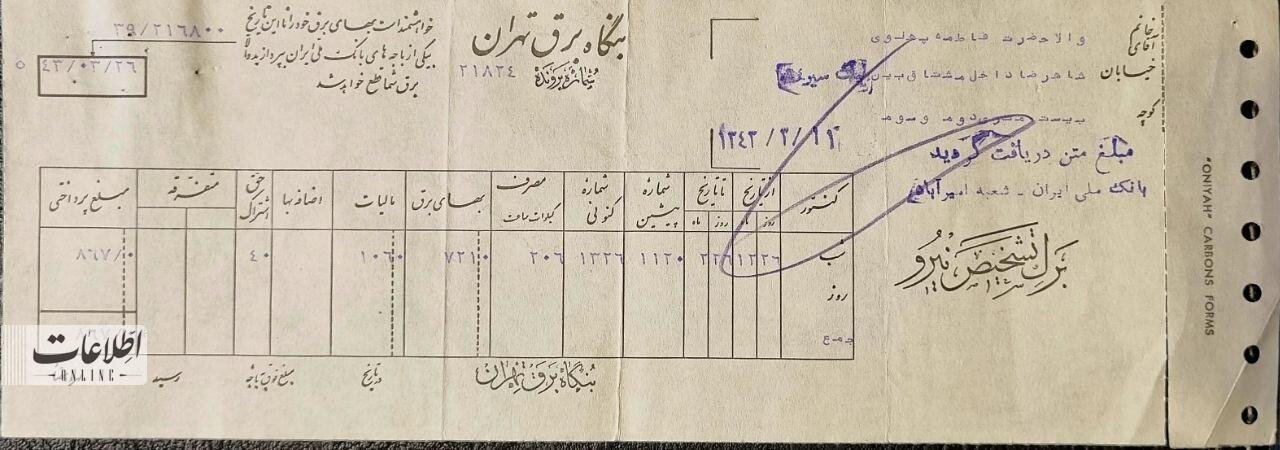 خانم
آقای
والاحضرت فاطمه پهلوی
خیابان
شاهرضا داخل مشتاق بین
کوچه
بیست متری دوم و سوم
۱۳۴۳/۳/۱۲
مبلغ متن دریافت گردید
بانک ملی ایران - شعبه امیرآباد
برگ تشخیص نیرو
بنگاه برق تهران
شماره پرونده
۲۱۸۲۴
خواهشمند است بهای برق خود را تا این تاریخ
بیکی از باجه های بانک ملی ایران بپردازید والا
برق شما قطع خواهد شد
۳۹/۲۱۶۸۰۰
۴۳/۰۳/۲۶
کنتور از تاریخ تا تاریخ شماره پیشین شماره کنونی مصرف کیلووات ساعت بهای برق مالیات اضافه بها حق اشتراک متفرقه مبلغ پرداختی
روز ماه روز ماه
شب ۱۲۲۶ ۲۲۶ ۱۱۲۰ ۱۳۲۶ ۲۰۶ ۷۲۱۰ ۱۰۶۰ ۴۰ ۸۶۷/۰
روز
جمع
بنگاه برق تهران
در تاریخ
مبلغ فوق بباجه
رسید
اطلاعات
ONLINE
"ONIYAH" CARBONS FORMS